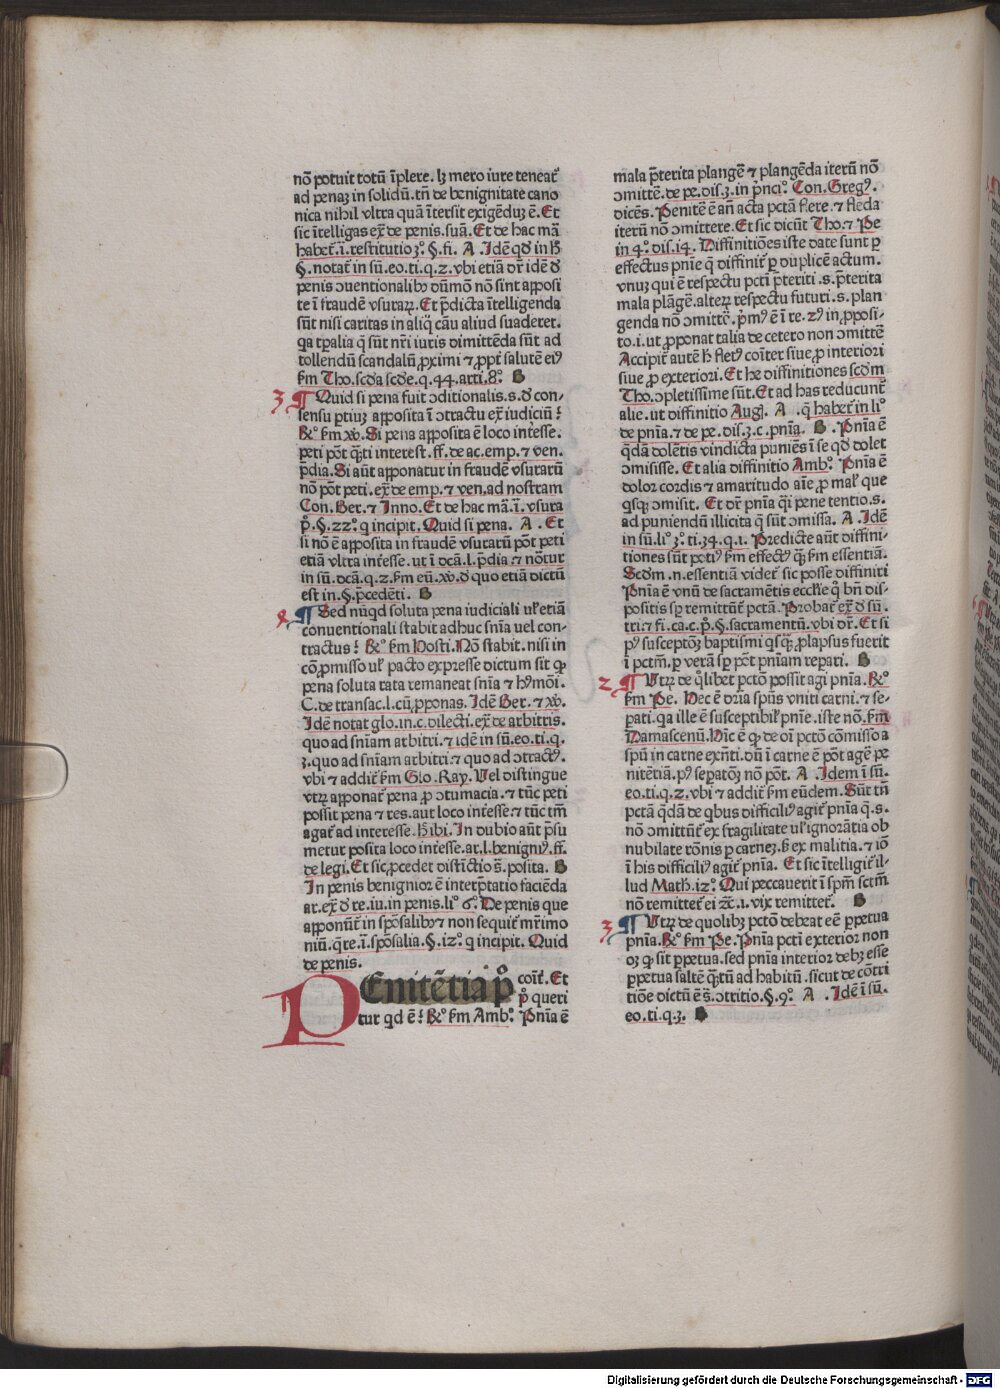 nō potuit totū īplere. lꝫ mero iure teneat᷑
ad penaꝫ in solidū. tn̄ de benignitate cano
nica nihil vltra quā ītersit exigēduꝫ ē. Et
sic ītelligas ex̄ de penis. suā. Et de hac mā
habet᷑. ī. restitutio.3ᵒ. §. fi. A . Idē qd̓ in lꝰ
§. notat᷑ in sū. eo. ti. q. 2. vbi etiā dr̄ idē d̓
penis ɔuentionalibꝰ dūmō nō sint apposi
te ī fraudē vsuraꝝ. Et p̄dicta ītelligenda
sūt nisi caritas in aliq̄ cāu aliud suaderet.
qa tp̄alia q̄ sūt nr̄i iuris dimittēda sūt ad
tollendū scandalū ꝓximi ⁊ ꝓpt᷑ salutē eiꝰ
ẜm Tho. scd̄a scd̄e. q. 44. arti. 8ᵒ. B
3 ¶ Quid si pena fuit ɔditionalis. s. d̓ con-
sensu ptiuꝫ apposita ī ɔtractu ex̄ iudiciū?
R̄ᵒ ẜm xp̄. Si pena apposita ē loco int̓esse.
peti pōt q̄ti interest. ff. de ac. emp. ⁊ ven.
p̄dia. Si aūt apponatur in fraudē vsurarū
nō pōt peti. ex̄ de emp. ⁊ ven. ad nostram
Con. Ber. ⁊ Inno. Et de hac mā. ī. vsura
p̄ᵒ. §. 22ᵒ. q incipit. Quid si pena. A . Et
si nō ē apposita in fraudē vsurarū pōt peti
etiā vltra int̓esse. ut ī dc̄a. l. p̄dia. ⁊ nōtur
in sū. dc̄a. q. 2. ẜm eū. xp̄. d̓ quo etiā dictū
est in §. p̄cedēti. B
4 ¶ Sed nūqd soluta pena iudiciali ul᷑ etiā
conuentionali stabit adhuc sn̄ia uel con-
tractus? R̄ᵒ ẜm Hosti. Nō stabit. nisi in
cōpmisso ul᷑ pacto expresse dictum sit ꝙ
pena soluta rata remaneat sn̄ia ⁊ hꝰmōi.
C. de transac. l. cū ꝓponas. Idē Ber. ⁊ xp̄.
Idē notat glo. in. c. dilecti. ex̄ de arbitris.
quo ad sn̄iam arbitri. ⁊ idē in sū. eo. ti. q.
3. quo ad sn̄iam arbitri: ⁊ quo ad ɔtractꝰ.
vbi ⁊ addit᷑ ẜm Glo. Ray. Vel distingue
vtꝝ apponat᷑ pena ꝓ ɔtumacia. ⁊ tūc peti
possit pena ⁊ res. aut loco int̓esse. ⁊ tūc tm̄
agat᷑ ad interesse. h̄ ibi. In dubio aūt p̄su
metur posita loco int̓esse. ar. l. benigniꝰ. ff.
de legi. Et sic ꝓcedet distīctio s̄. posita. B
In penis benignior ē interp̄tatio faciēda
ar. ex̄ d̓ re. iu. in penis. liᵒ 6ᵒ. De penis que
apponūt᷑ in spōsalibꝰ ⁊ non sequit᷑ mr̄imo
niū. q̄re. ī. spōsalia. §. 12ᵒ. q incipit. Quid
de penis.
PEnitētia p̄ᵒ coīt᷑. Et
p̄ᵒ queri
tur qd ē? R̄ᵒ ẜm Ambꝰ. Pn̄ia ē
mala p̄terita plangē ⁊ plangēda iterū nō
ɔmittē. de pe. dis. 3. in p̄nciᵒ. Con. Gregꝰ.
dicēs. Penitē ē an̄ acta pctā flere. ⁊ flēda
iterū nō ɔmittere. Et sic dicūt Tho. ⁊ Pe
in 4ᵒ. dis. 14. Diffinitiōes iste date sunt ꝑ
effectus pn̄ie q̄ diffinit᷑ ꝑ duplicē actum.
vnuꝫ qui ē respectu pcti p̄teriti. s. p̄terita
mala plāgē. alteꝝ respectu futuri. s. plan
genda nō ɔmittē. p̄mꝰ ē ī re. 2ꝰ in ꝓposi-
to. i. ut ꝓponat talia de cetero non ɔmittē
Accipit᷑ autē h̄ fletꝰ cōiter siue ꝓ interiori
siue ꝓ exteriori. Et he diffinitiones scd̄m
Tho. ɔpletissime sūt. Et ad has reducunt᷑
alie. ut diffinitio Augꝰ. A . q̄ habet᷑ in liᵒ
de pn̄ia. ⁊ de pe. dis. 3. c. pn̄ia. B . Pn̄ia ē
q̄dā dolētis vindicta puniēs ī se qd̓ dolet
ɔmisisse. Et alia diffinitio Ambꝰ. Pn̄ia ē
dolor cordis ⁊ amaritudo aīe ꝓ mal᷑ que
qsqꝫ ɔmisit. Et dr̄ pn̄ia q̄i pene tentio. s.
ad puniendū illicita q̄ sūt ɔmissa. A . Idē
in sū. liᵒ 3ᵒ. ti. 34. q. 1. Predicte aūt diffini-
tiones sūt potiꝰ ẜm effectꝰ q̄ꝫ ẜm essentiā.
Scd̄m. n. essentiā videt᷑ sic posse diffiniri
Pn̄ia ē vnū de sacramētis ecclīe q̄ bn̄ dis-
positis sꝑ remittūt᷑ pctā. Probat᷑ ex̄ d̓ sū.
tri. ⁊ fi. ca. c. p̄ᵒ. §. sacramentū. vbi dr̄. Et si
pꝰ susceptōꝫ baptismi qsqꝫ ꝓlapsus fuerit
ī pctm̄. ꝑ verā sꝑ pōt pn̄iam repari. B
2 ¶ Vtꝝ de q̄libet pctō possit agi pn̄ia. R̄ᵒ
ẜm Pe. Hec ē dr̄ia spūs vniti carni. ⁊ se-
pati. qa ille ē susceptibil᷑ pn̄ie. iste nō. ẜm
Damascenū. Hīc ē ꝙ de oī pctō cōmisso a
spū in carne exn̄ti. dū ī carne ē pōt agē pe
nitētiā. pꝰ sepatōꝫ nō pōt. A . Idem ī sū.
eo. ti. q. 2. vbi ⁊ addit᷑ ẜm eūdem. Sūt tn̄
pctā q̄dā de qbus difficiliꝰ agit᷑ pn̄ia q̄. s.
nō ɔmittūt᷑ ex fragilitate ul᷑ ignorātia ob
nubilate rōnis ꝑ carneꝫ. ẜ ex malitia. ⁊ iō
ī his difficiliꝰ agit᷑ pn̄ia. Et sic ītelligit᷑ il-
lud Math. 12ᵒ. Qui peccauerit ī spm̄ sctm̄
nō remittet᷑ ei ⁊c̄. i. vix remittet᷑. B
3 ¶ Vtꝝ de quolibꝫ pctō debeat eē ꝑpetua
pn̄ia. R̄ᵒ ẜm Pe. Pn̄ia pcti exterior non
oꝫ ꝙ sit ꝑpetua. sed pn̄ia interior debꝫ esse
ꝑpetua saltē q̄tū ad habitū. sicut de cōtri
tiōe dictū ē s̄. ɔtritio. §. 9ᵒ. A . Idē ī sū.
eo. ti. q. 3. B
Digitalisierung gefördert durch die Deutsche Forschungsgemeinschaft - DFG